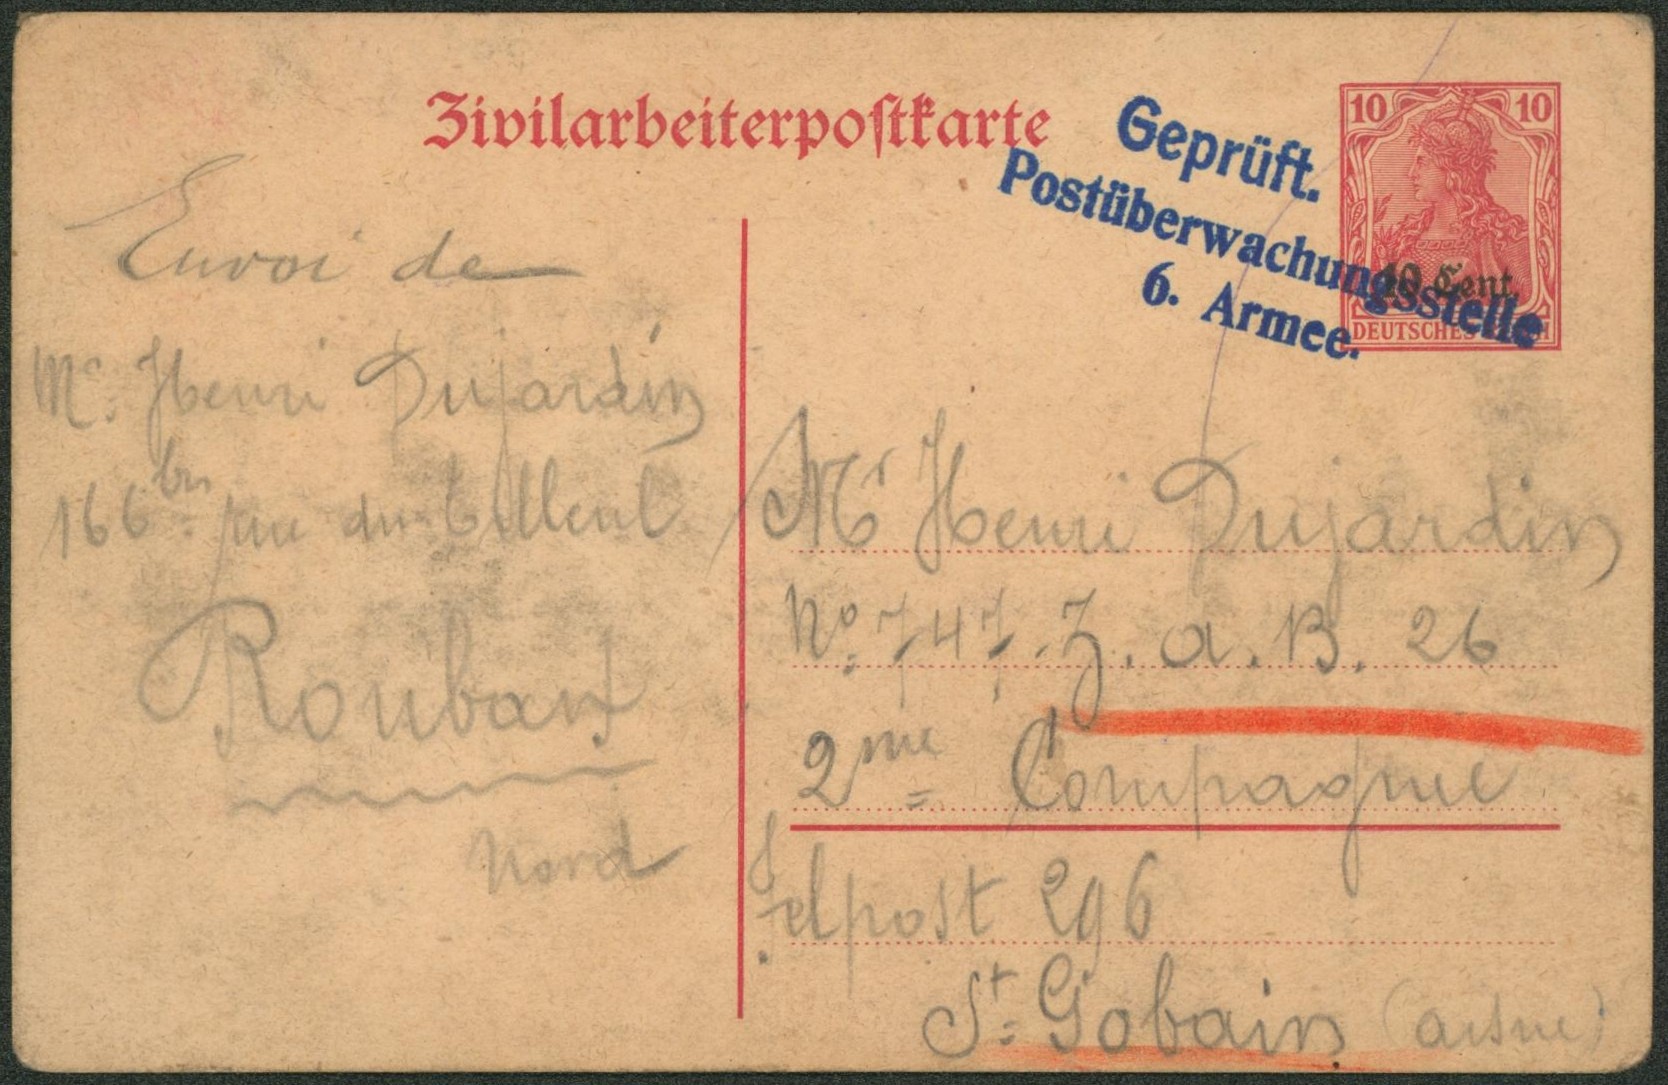 Zivilarbeiterpostkarte
Geprüft.
Postüberwachungsstelle
6. Armee.
10 10
10 Cent.
DEUTSCHES
Envoi de
Mr. Henri Dujardin
166 bis rue du Tilleul
Roubaix
Nord
Mr Henri Dujardin
No. 747. Z. a. B. 26
2me Compagnie
Felpost 296
St. Gobain (aisne)